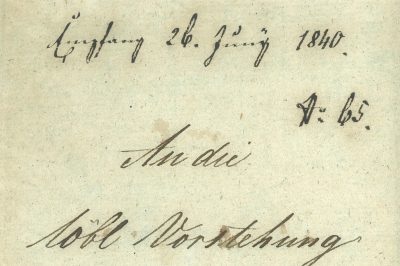 Empfang 26. Juny 1840.
No 65.
An die
löbl Vorstehung